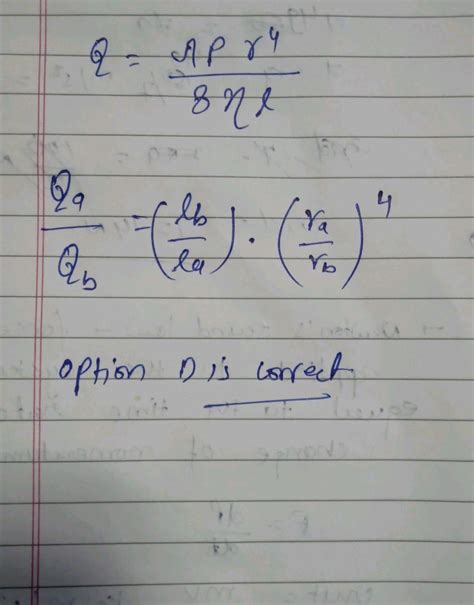 Q = ΔP r⁴ / 8ηl
Qa / Qb = (lb / la) · (ra / rb)⁴
option D is correct